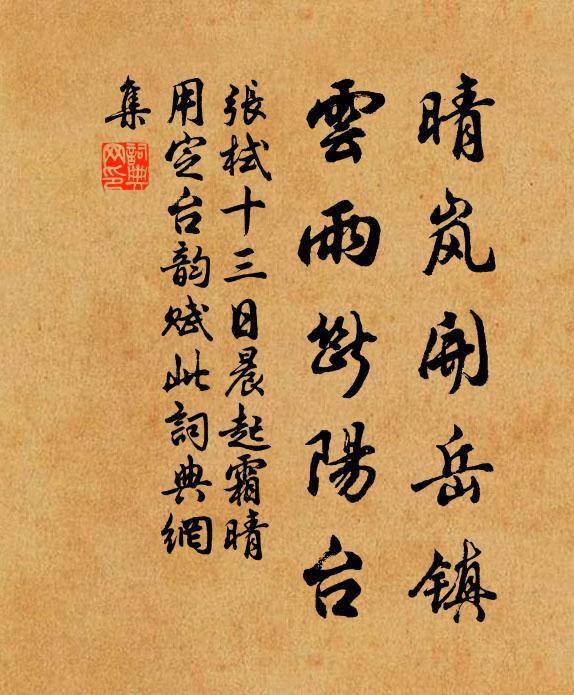 晴岚開岳镇
雲雨斷陽台
張栻十三日晨起霜晴
用定台韵赋此詞典網
集
詞典網印